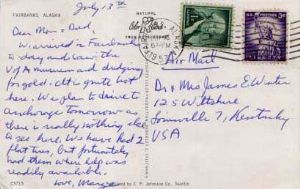 July 13th
FAIRBANKS, ALASKA
NATURAL
Dear Mom & Dad,
We arrived in Fairbanks
today and saw the
U of A museum and dredging
for gold. Ate a great hot
here. We plan to drive to
Anchorage tomorrow as
there is really nothing else
to see here. We have had 2
flat tires, but fortunately
had them where help was
readily available.
Love, Marge
Air Mail
Dr & Mrs James E Winter
125 Wiltshire
Louisville 7, Kentucky
USA
C3715
by C. P. Johnson Co., Seattle